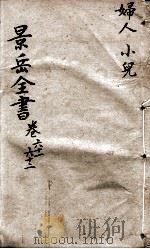 婦人 小兒
景岳全書 卷六十一
六十二